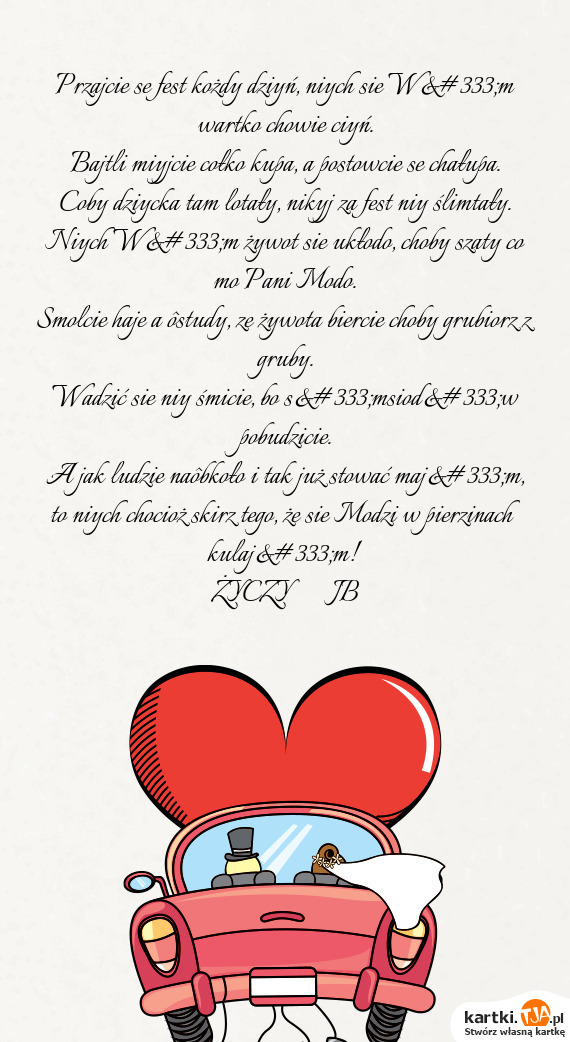 Przajcie se fest kożdy dziyń, niych sie W&#333;m
wartko chowie ciyń.
Bajtli miyjcie cołko kupa, a postowcie se chałupa.
Coby dziycka tam lotały, nikyj za fest niy ślimtały.
Niych W&#333;m żywot sie układo, choby szaty co
mo Pani Modo.
Smolcie haje a ôstudy, ze żywota biercie choby grubiorz z
gruby.
Wadzić sie niy śmicie, bo s&#333;msiod&#333;w
pobudzicie.
A jak ludzie naôbkoło i tak już stować maj&#333;m,
to niych chocioż skirz tego, że sie Modzi w pierzinach
kulaj&#333;m!
ŻYCZY JB
kartki.TJA.pl
Stwórz własną kartkę